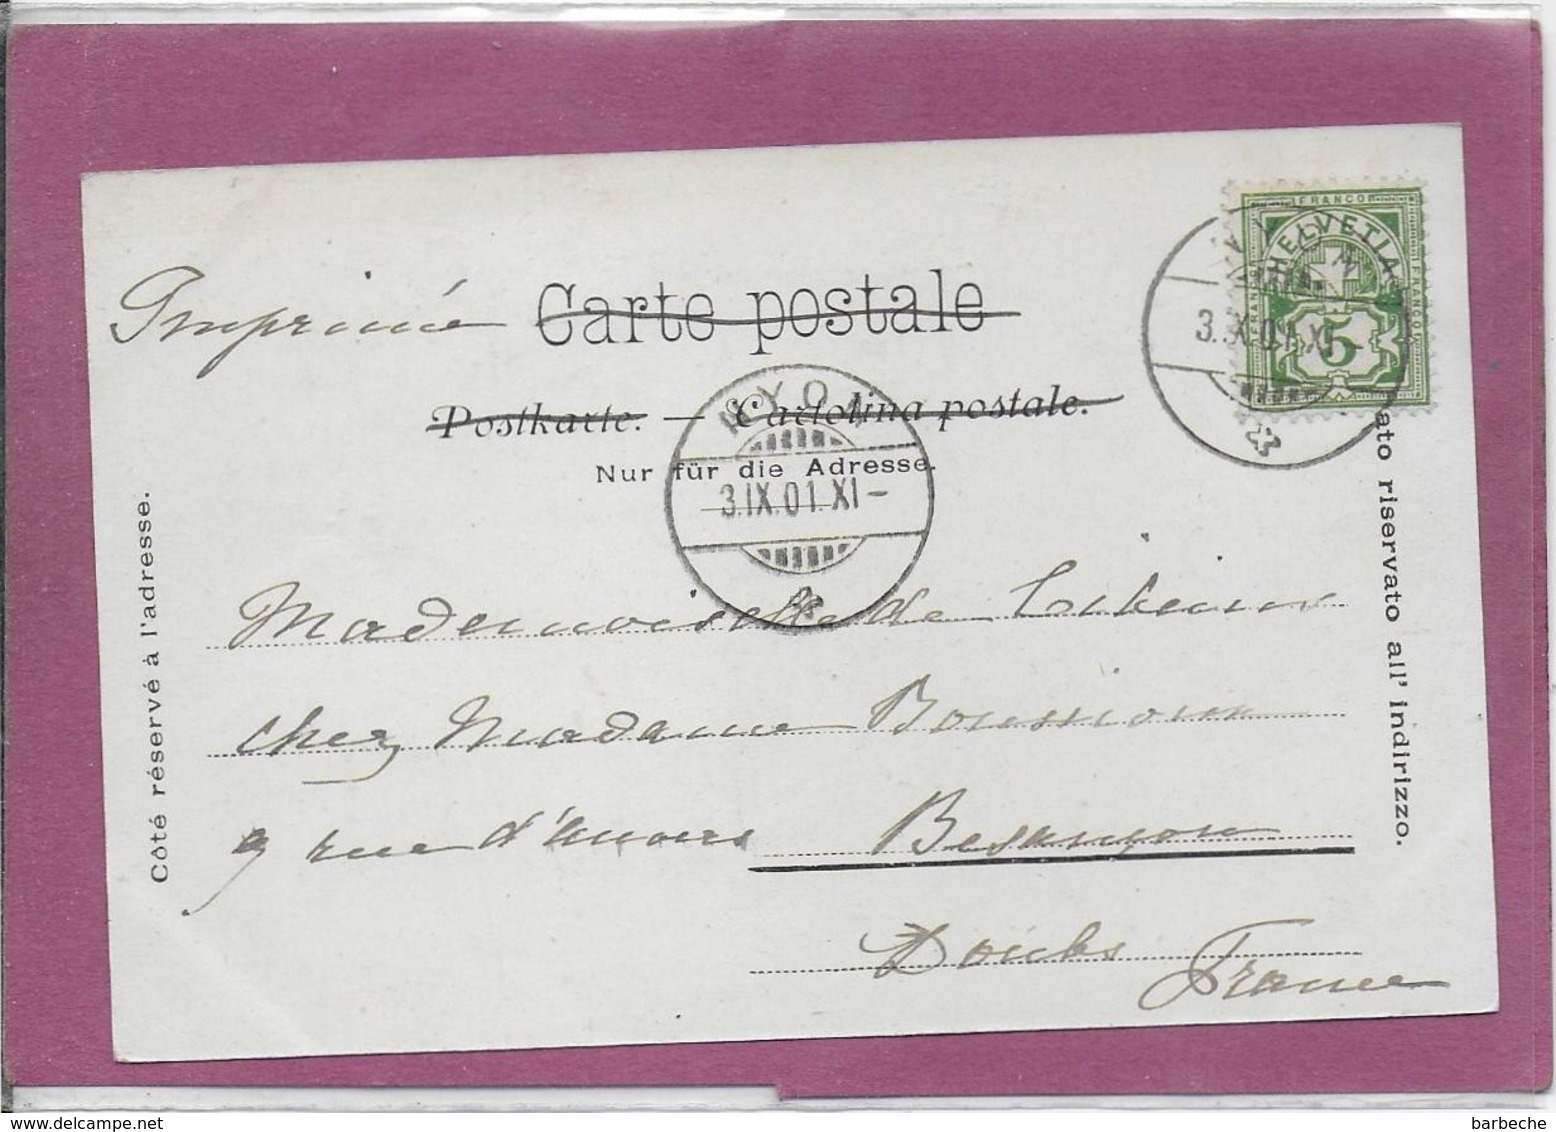 FRANCO
HELVETIA
FRANCO
5
3.IX.01.XI-
Imprimé
Carte postale
Postkarte. — Cartolina postale.
Nur für die Adresse.
NYON
3.IX.01.XI-
Côté réservé à l'adresse.
ato riservato all' indirizzo.
Mademoiselle de
chez Madame
9 rue d'anvers Besançon
Doubs
France
barbeche